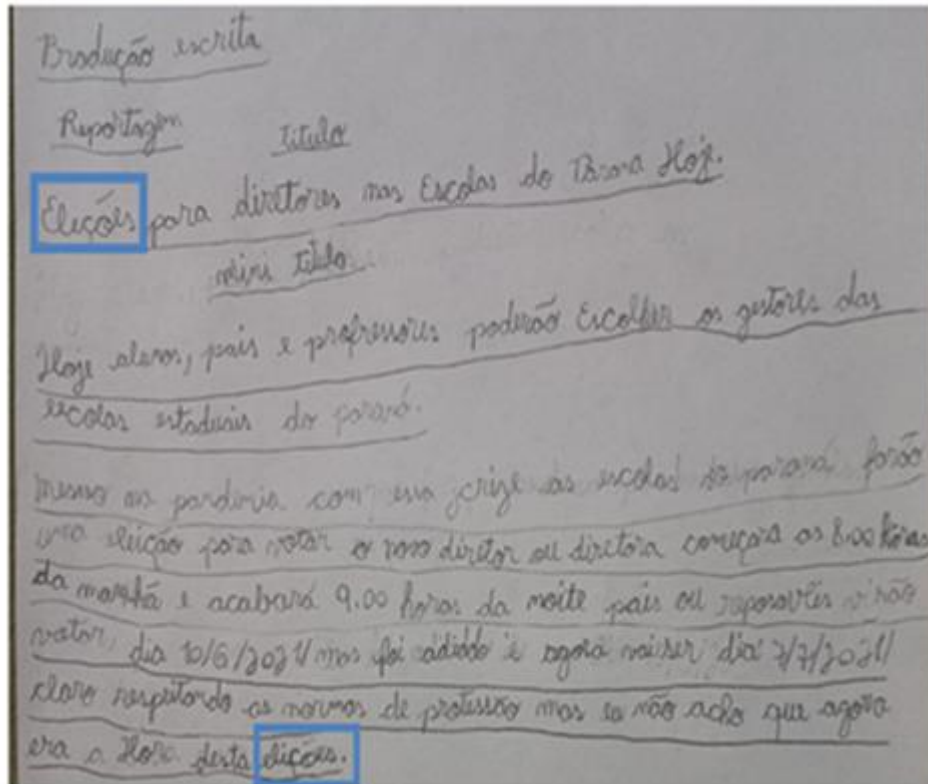 Produção escrita
Reportagem título
Eleições para diretores nas Escolas do Paraná Hoje.
mini título
Hoje alunos, pais e profressores poderão escolher os gestores das
escolas estaduais do paraná.
mesmo na pandemia com essa crize as escolas do paraná farão
uma eleição para votar o novo diretor ou diretora começara as 8.00 horas
da manhã e acabará 9.00 horas da noite pais ou virão
votar, dia 10/6/2021 mas foi adiado e agora vai ser dia 7/7/2021
claro respeitando as normas de mas eu não acho que agora
era a Hora desta elições.